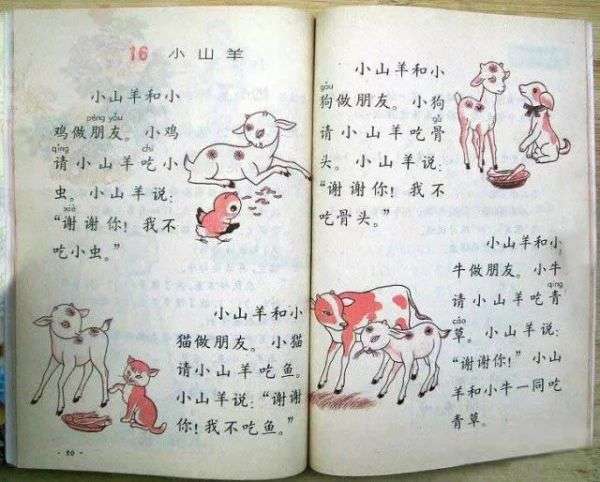 16 小山羊
小山羊和小
péng yǒu
鸡做朋友。小鸡
qǐng chī
请小山羊吃小
虫。小山羊说:
xiè
“谢谢你!我不
吃小虫。”
小山羊和小
猫做朋友。小猫
请小山羊吃鱼。
小山羊说:“谢谢
你!我不吃鱼。”
小山羊和小
gǒu
狗做朋友。小狗
gǔ
请小山羊吃骨
头。小山羊说:
“谢谢你!我不
吃骨头。”
小山羊和小
牛做朋友。小牛
qīng
请小山羊吃青
cǎo
草。小山羊说:
“谢谢你!”小山
羊和小牛一同吃
青草。